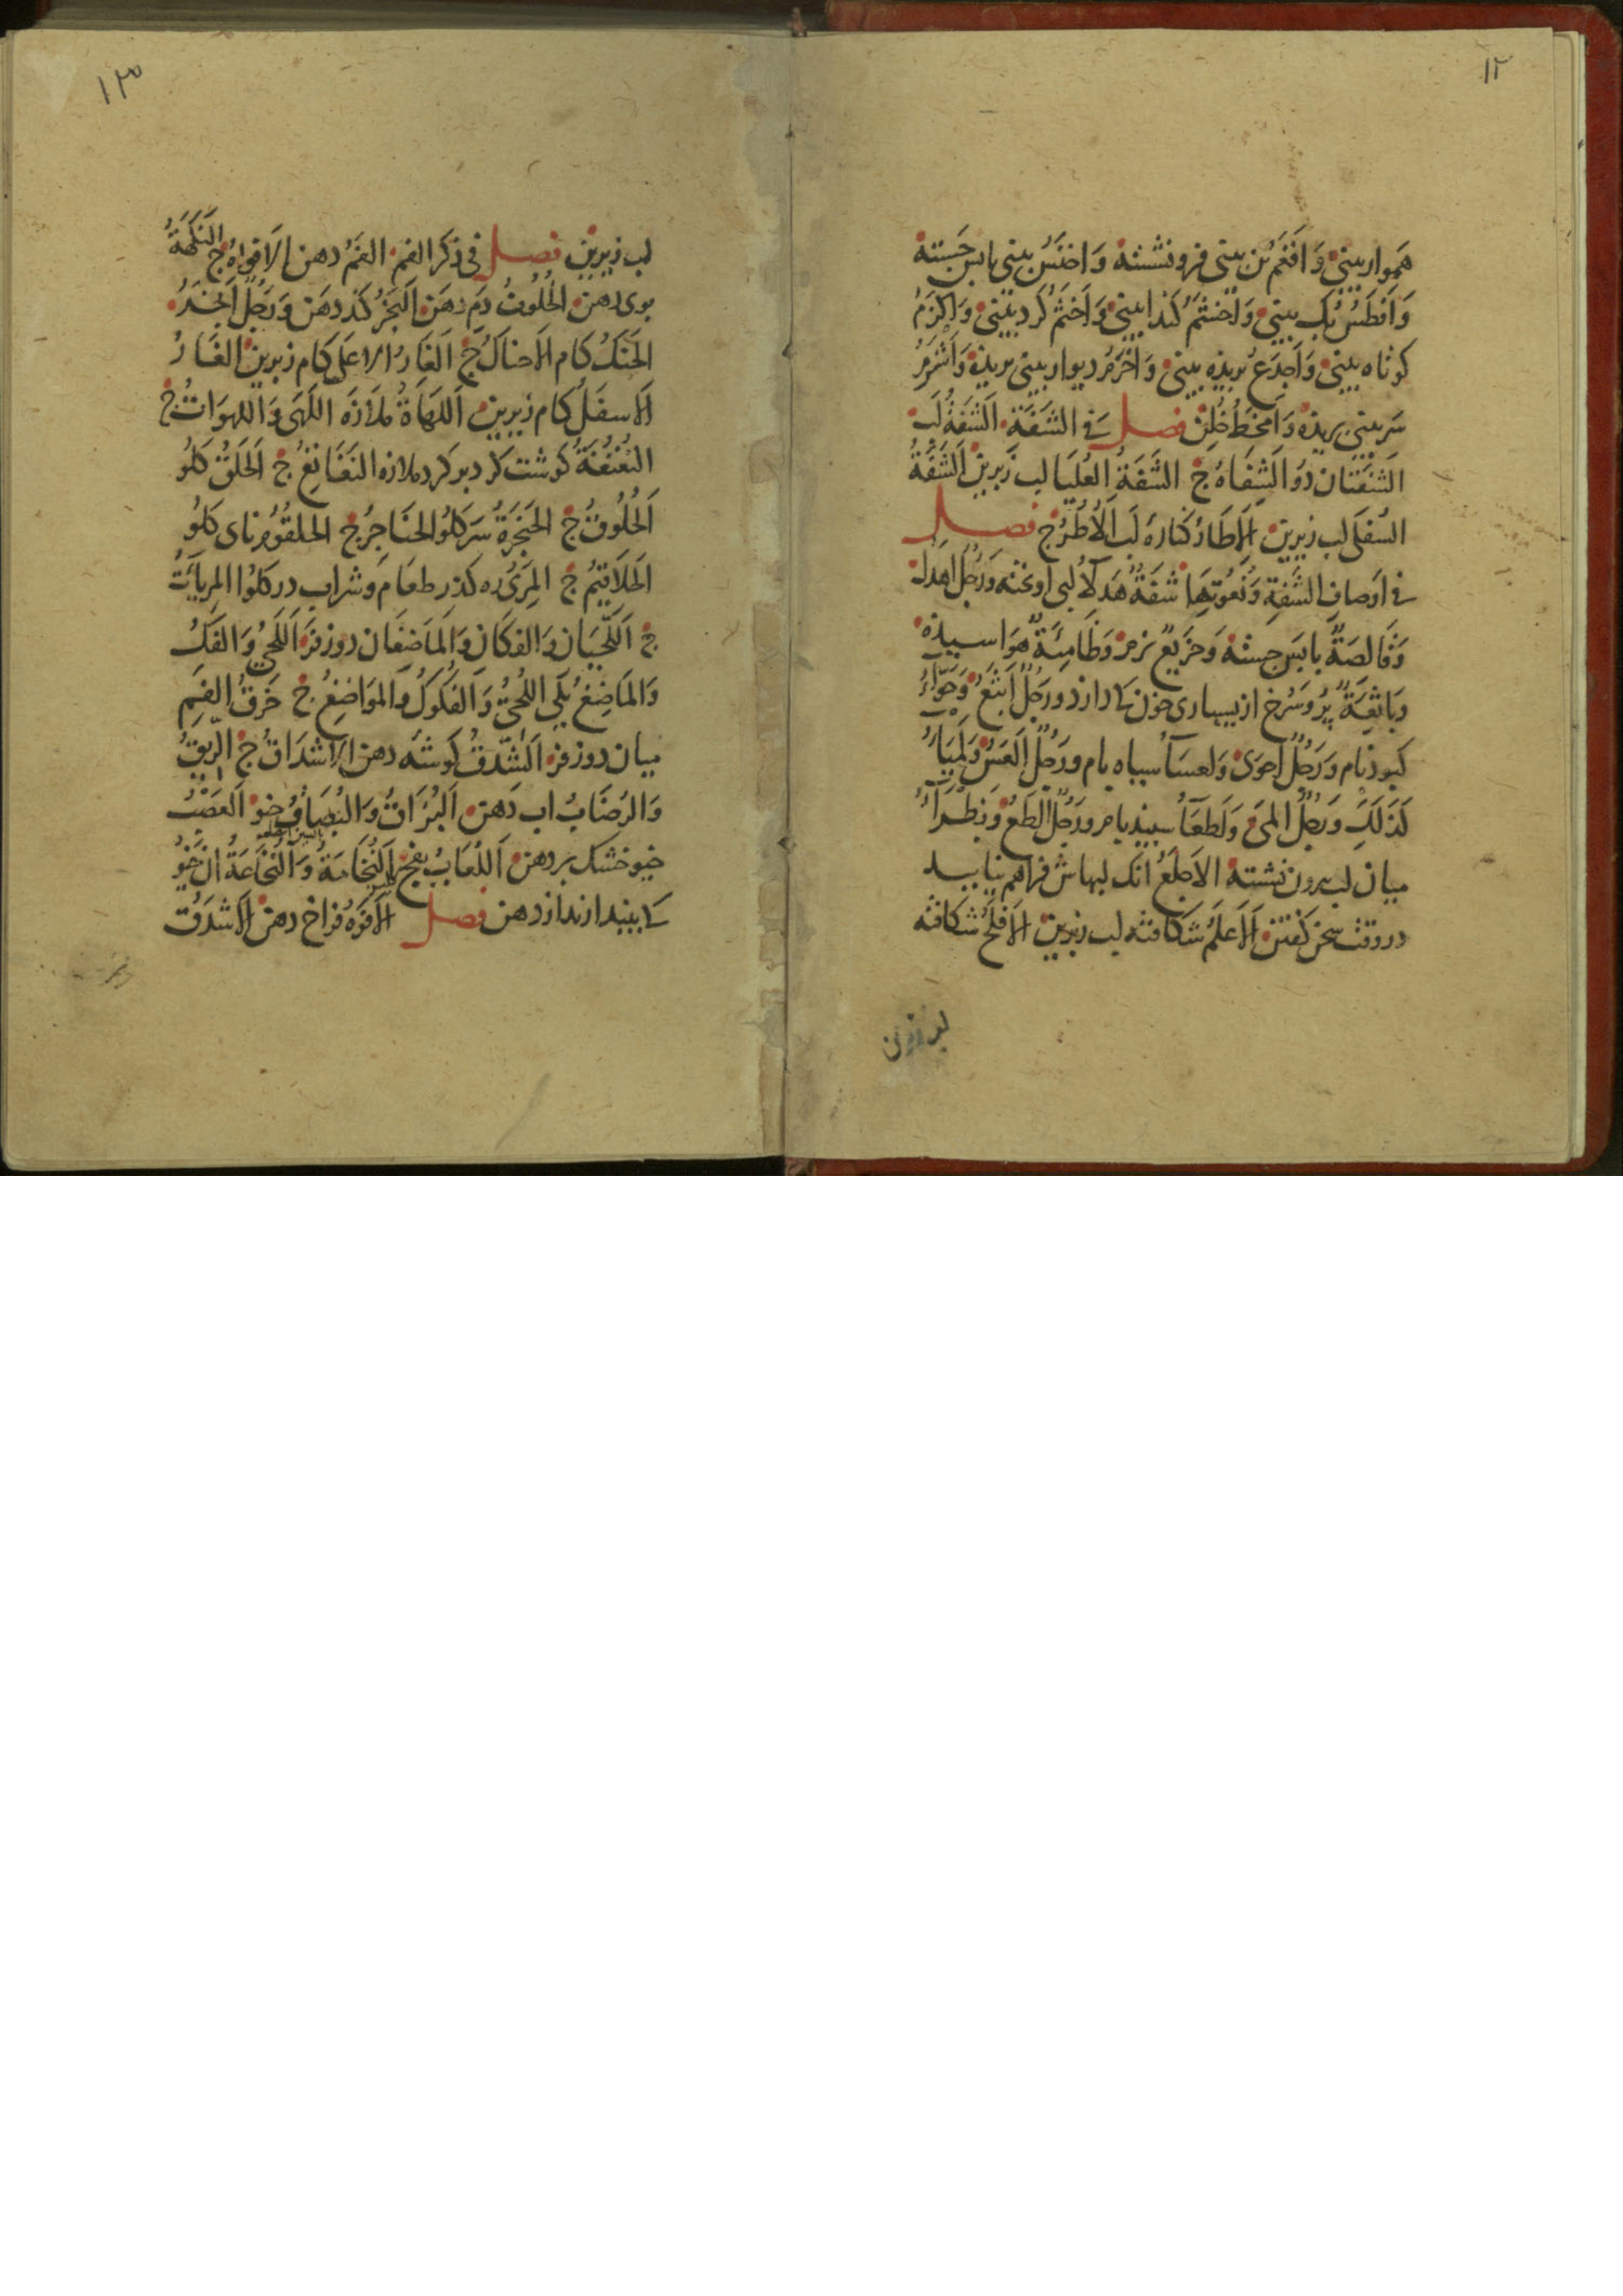 ١٢
هَموار بینی وَ اَفغَم بُن بینی فرو نشسته وَ اخنَسُ بینی باپس جَسته
وَ اَفطَسُ پک بینی وَ اَخشَمُ کَندا بینی وَ اَخثَمُ کَرد بینی وَ اَکزَمُ
کوتاه بینی وَ اَجدَعُ بُریذه بینی وَ اَخرَمُ دیوار بینی بریذه وَ اَشرَمُ
سَر بینی بریذه وَ اَمخَطُ خُلِن فصل فی الشَفَة الشَفَةُ لَب
الشَفَتَان دُو الشِفَاهُ ج الشَفَةُ العُلیَا لب زَبرین الشَفَةُ
السُفلَی لب زیرین الإطَارُ کنارهٔ لَب الأُطُرُ ج فصل
فی اَوصافِ الشَفَةِ وَ نُعُوتِهَا شَفَةٌ هَدلَآءُ لبی اوخته وَ رَجُلٌ اَهدَلُ
وَ قَالِصَةٌ باپَس جسته وَ خَرِیعٌ نرم وَ ظَامِئَةٌ هوَاسیذه
وَ بَاثِعَةٌ پُر وَ سُرخ از بسیاری خون که دارذ و رَجُلٌ اَبثَعُ وَ حَوَّآءُ
کبوذ بام وَ رَجُلٌ اَحوَی وَ لَعسَآءُ سیاه بام و رَجُلٌ اَلعَسُ وَ لَمیَآءُ
کَذَلَکِ وَ رَجُلٌ اَلمَی وَ لَطعَآءُ سپید بام و رَجُلٌ اَلطَعُ وَ بَظرَآءُ
میان لب بیرون نشسته الاَجلَعُ آنک لبهاش فراهم نیاید
در وقت سخن کَفتن اَلاَعلَمُ شکافته لب زبرین الاَفلَحُ شکافته
لب زیرین
١٣
لب زیرین فصل فی ذکر الفم الفَمُ دهن الاَفوَاهُ ج النَکهَةُ
بوی دهن الخُلُوفُ دَم دهَن اَلبَخَرُ کَند دهَن وَ رَجُلٌ اَبخَرُ
الحَنَکُ کام الاَحناکُ ج اَلغَارُ الاَعلَی کام زبرین الغَارُ
الاَسفَلُ کام زیرین اَللَهَاةُ مَلَازَه اللَهَی وَ اللهَوَاتُ ج
النُغنُغَةُ کوشت کرد بر کرد ملازه النَغَانِغُ ج اَلحَلقُ کلُو
اَلحُلُوقُ ج الحَنجَرَةُ سَر کلُو الحَنَاجِرُ ج الحلقُومُ نای کلُو
الحَلَاقیمُ ج المَرِیُ ره کذر طعَام وَ شراب در کلُو المریآتُ
ج اَللَحیَانِ وَ الفَکانِ وَ المَاضِغَان دو زفر اَللَحیُ وَ الفَکُ
وَ المَاضِغُ یکی اللُحِیُّ وَ الفُکُوکُ وَ المَوَاضِغُ ج خَرقُ الفَمِ
میان دو زفر اَلشِّدقُ کوشَه دهن الاَشدَاقُ ج الرِّیقُ
وَ الرُضَابُ اب دَهن اَلبُزَاقُ وَ البُصَاقُ خیو اَلعَصبُ
خیو خشک بر دهن اَللُعَابُ بفج اَلنُخَامَةُ وَ النُخَاعَةُ آن خَیُو
که ببیندازند از دهن فصل الاَفوَهُ فراخ دهن الاَشدَقُ